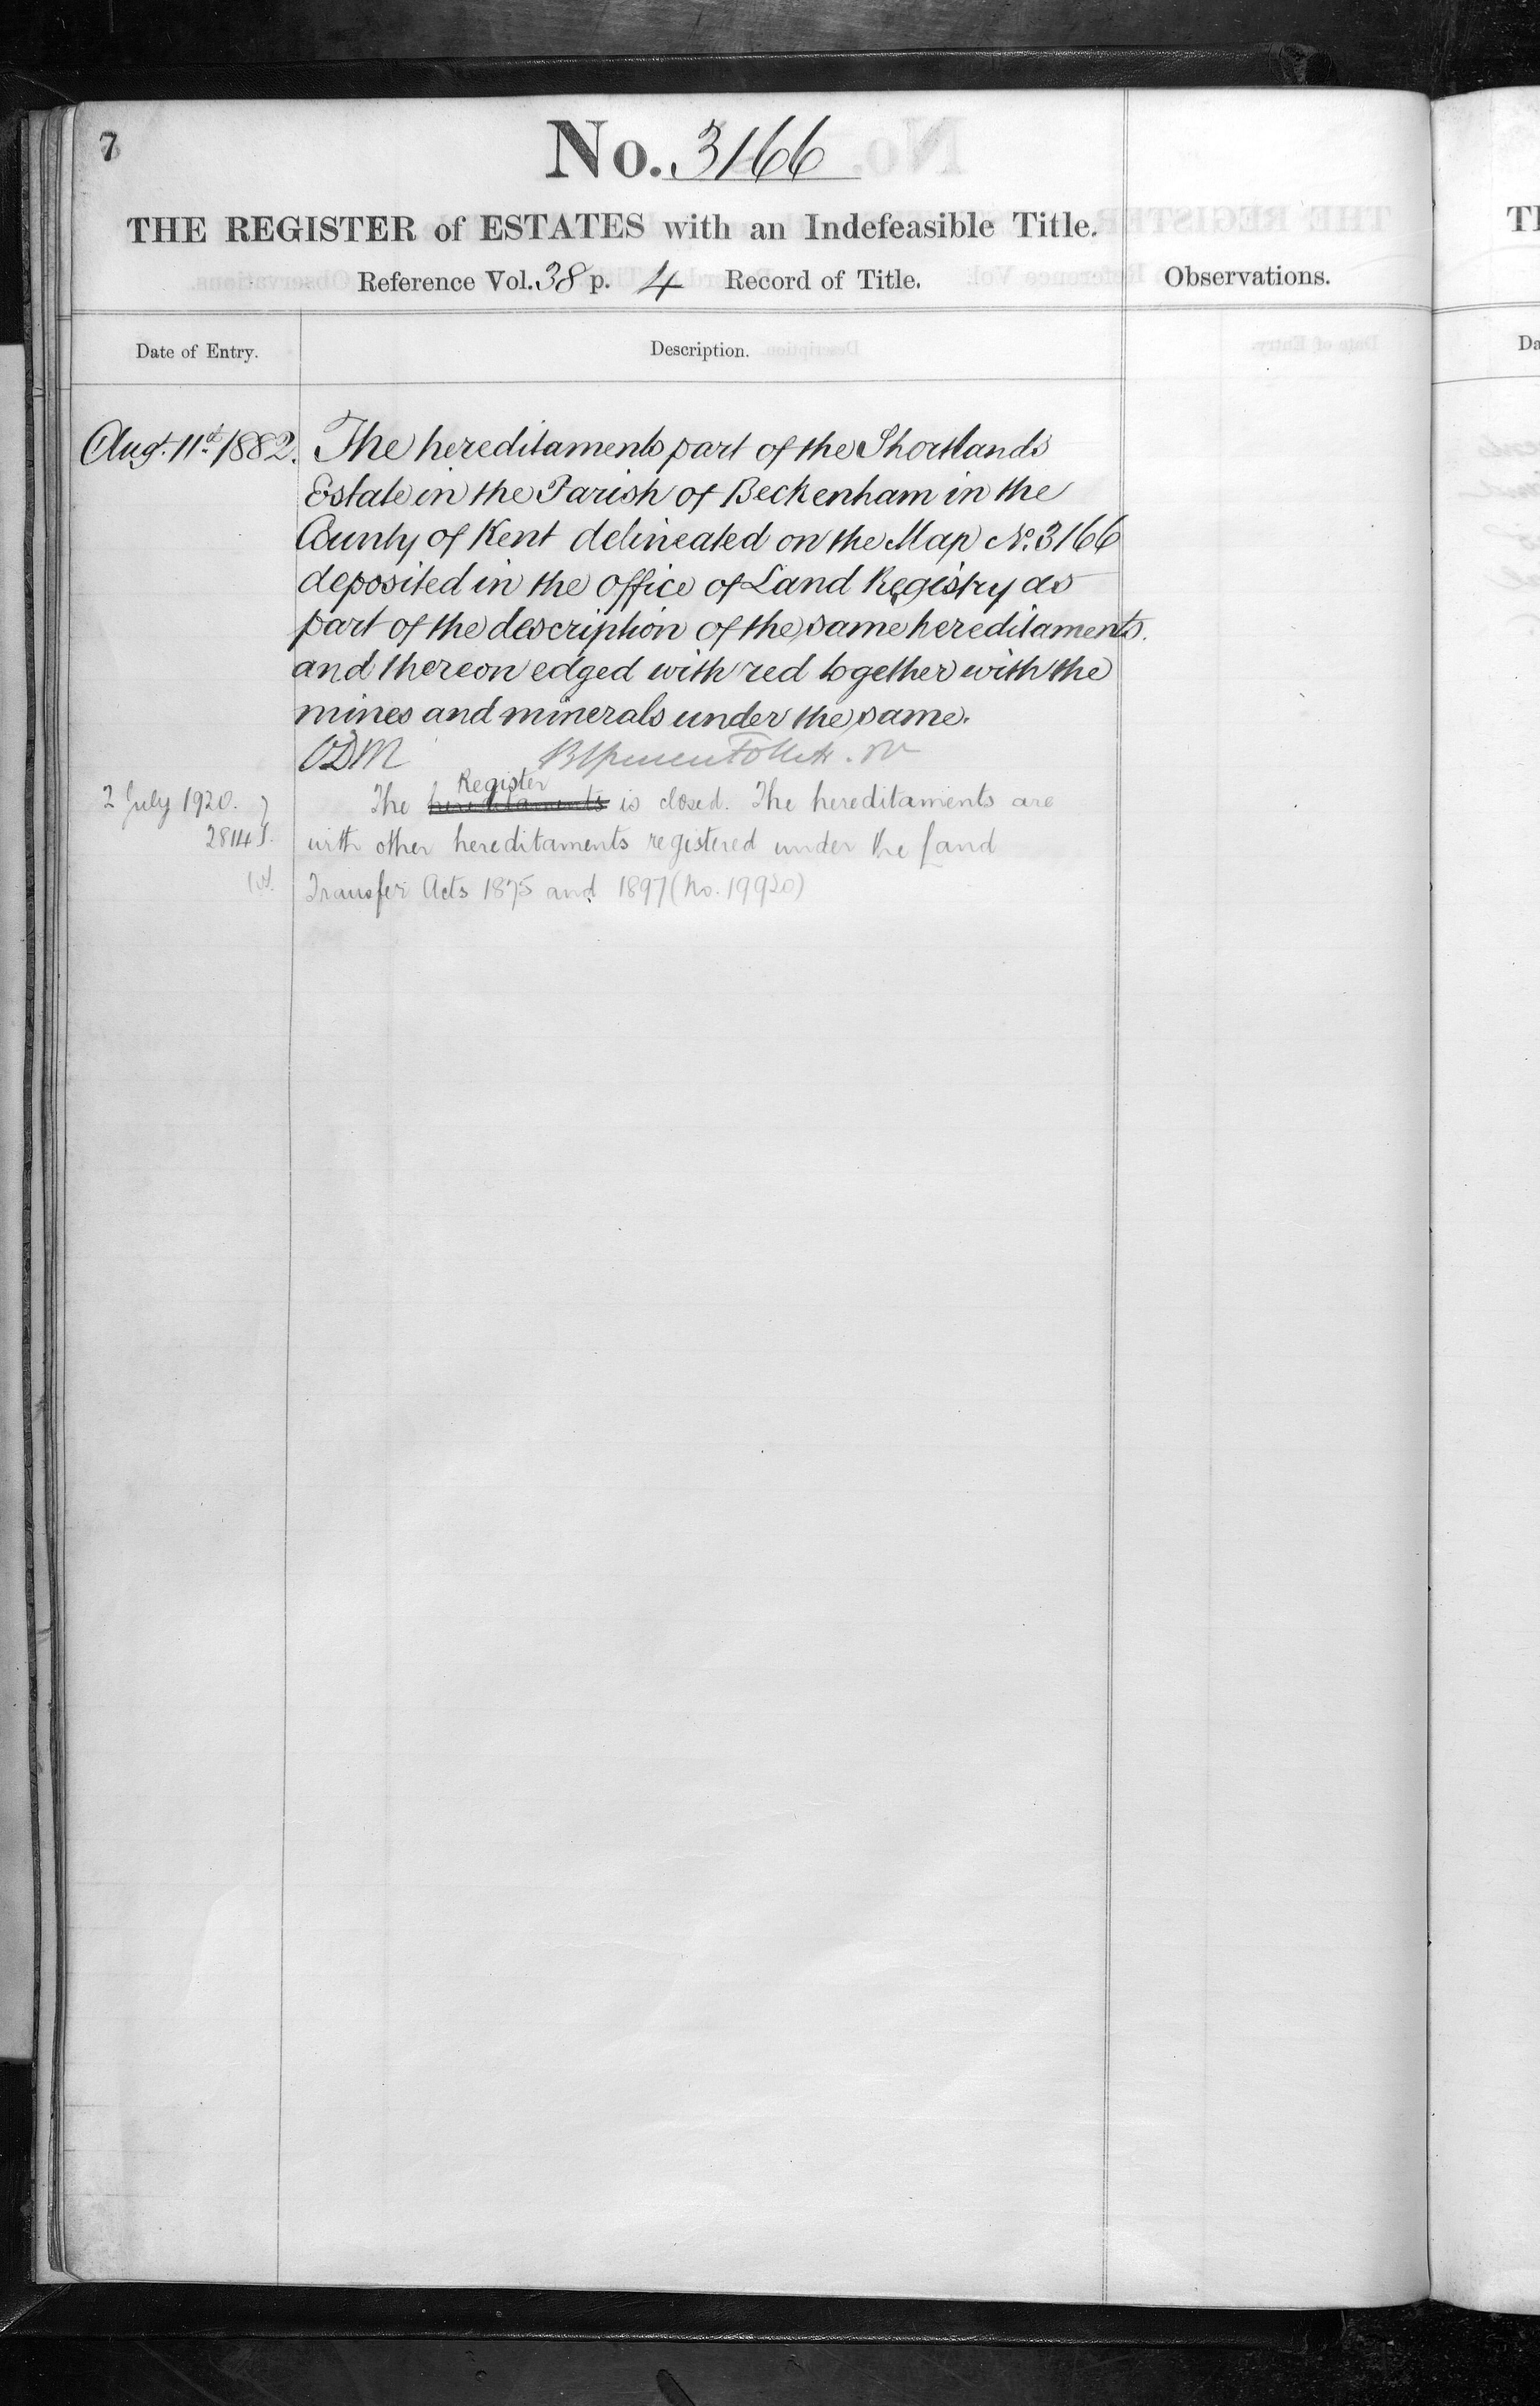 7
No. 3166
THE REGISTER of ESTATES with an Indefeasible Title.
Reference Vol. 38 p. 4 Record of Title.
Observations.
Date of Entry.
Description.
Augt. 11th 1882.
The hereditaments part of the Shortlands
Estate in the Parish of Beckenham in the
County of Kent delineated on the Map No. 3166
deposited in the office of Land Registry as
part of the description of the same hereditaments.
and thereon edged with red together with the
mines and minerals under the same.
2 July 1920.
Register
The hereditaments is closed. The hereditaments are
with other hereditaments registered under the Land
Transfer Acts 1875 and 1897 (No. 19920)